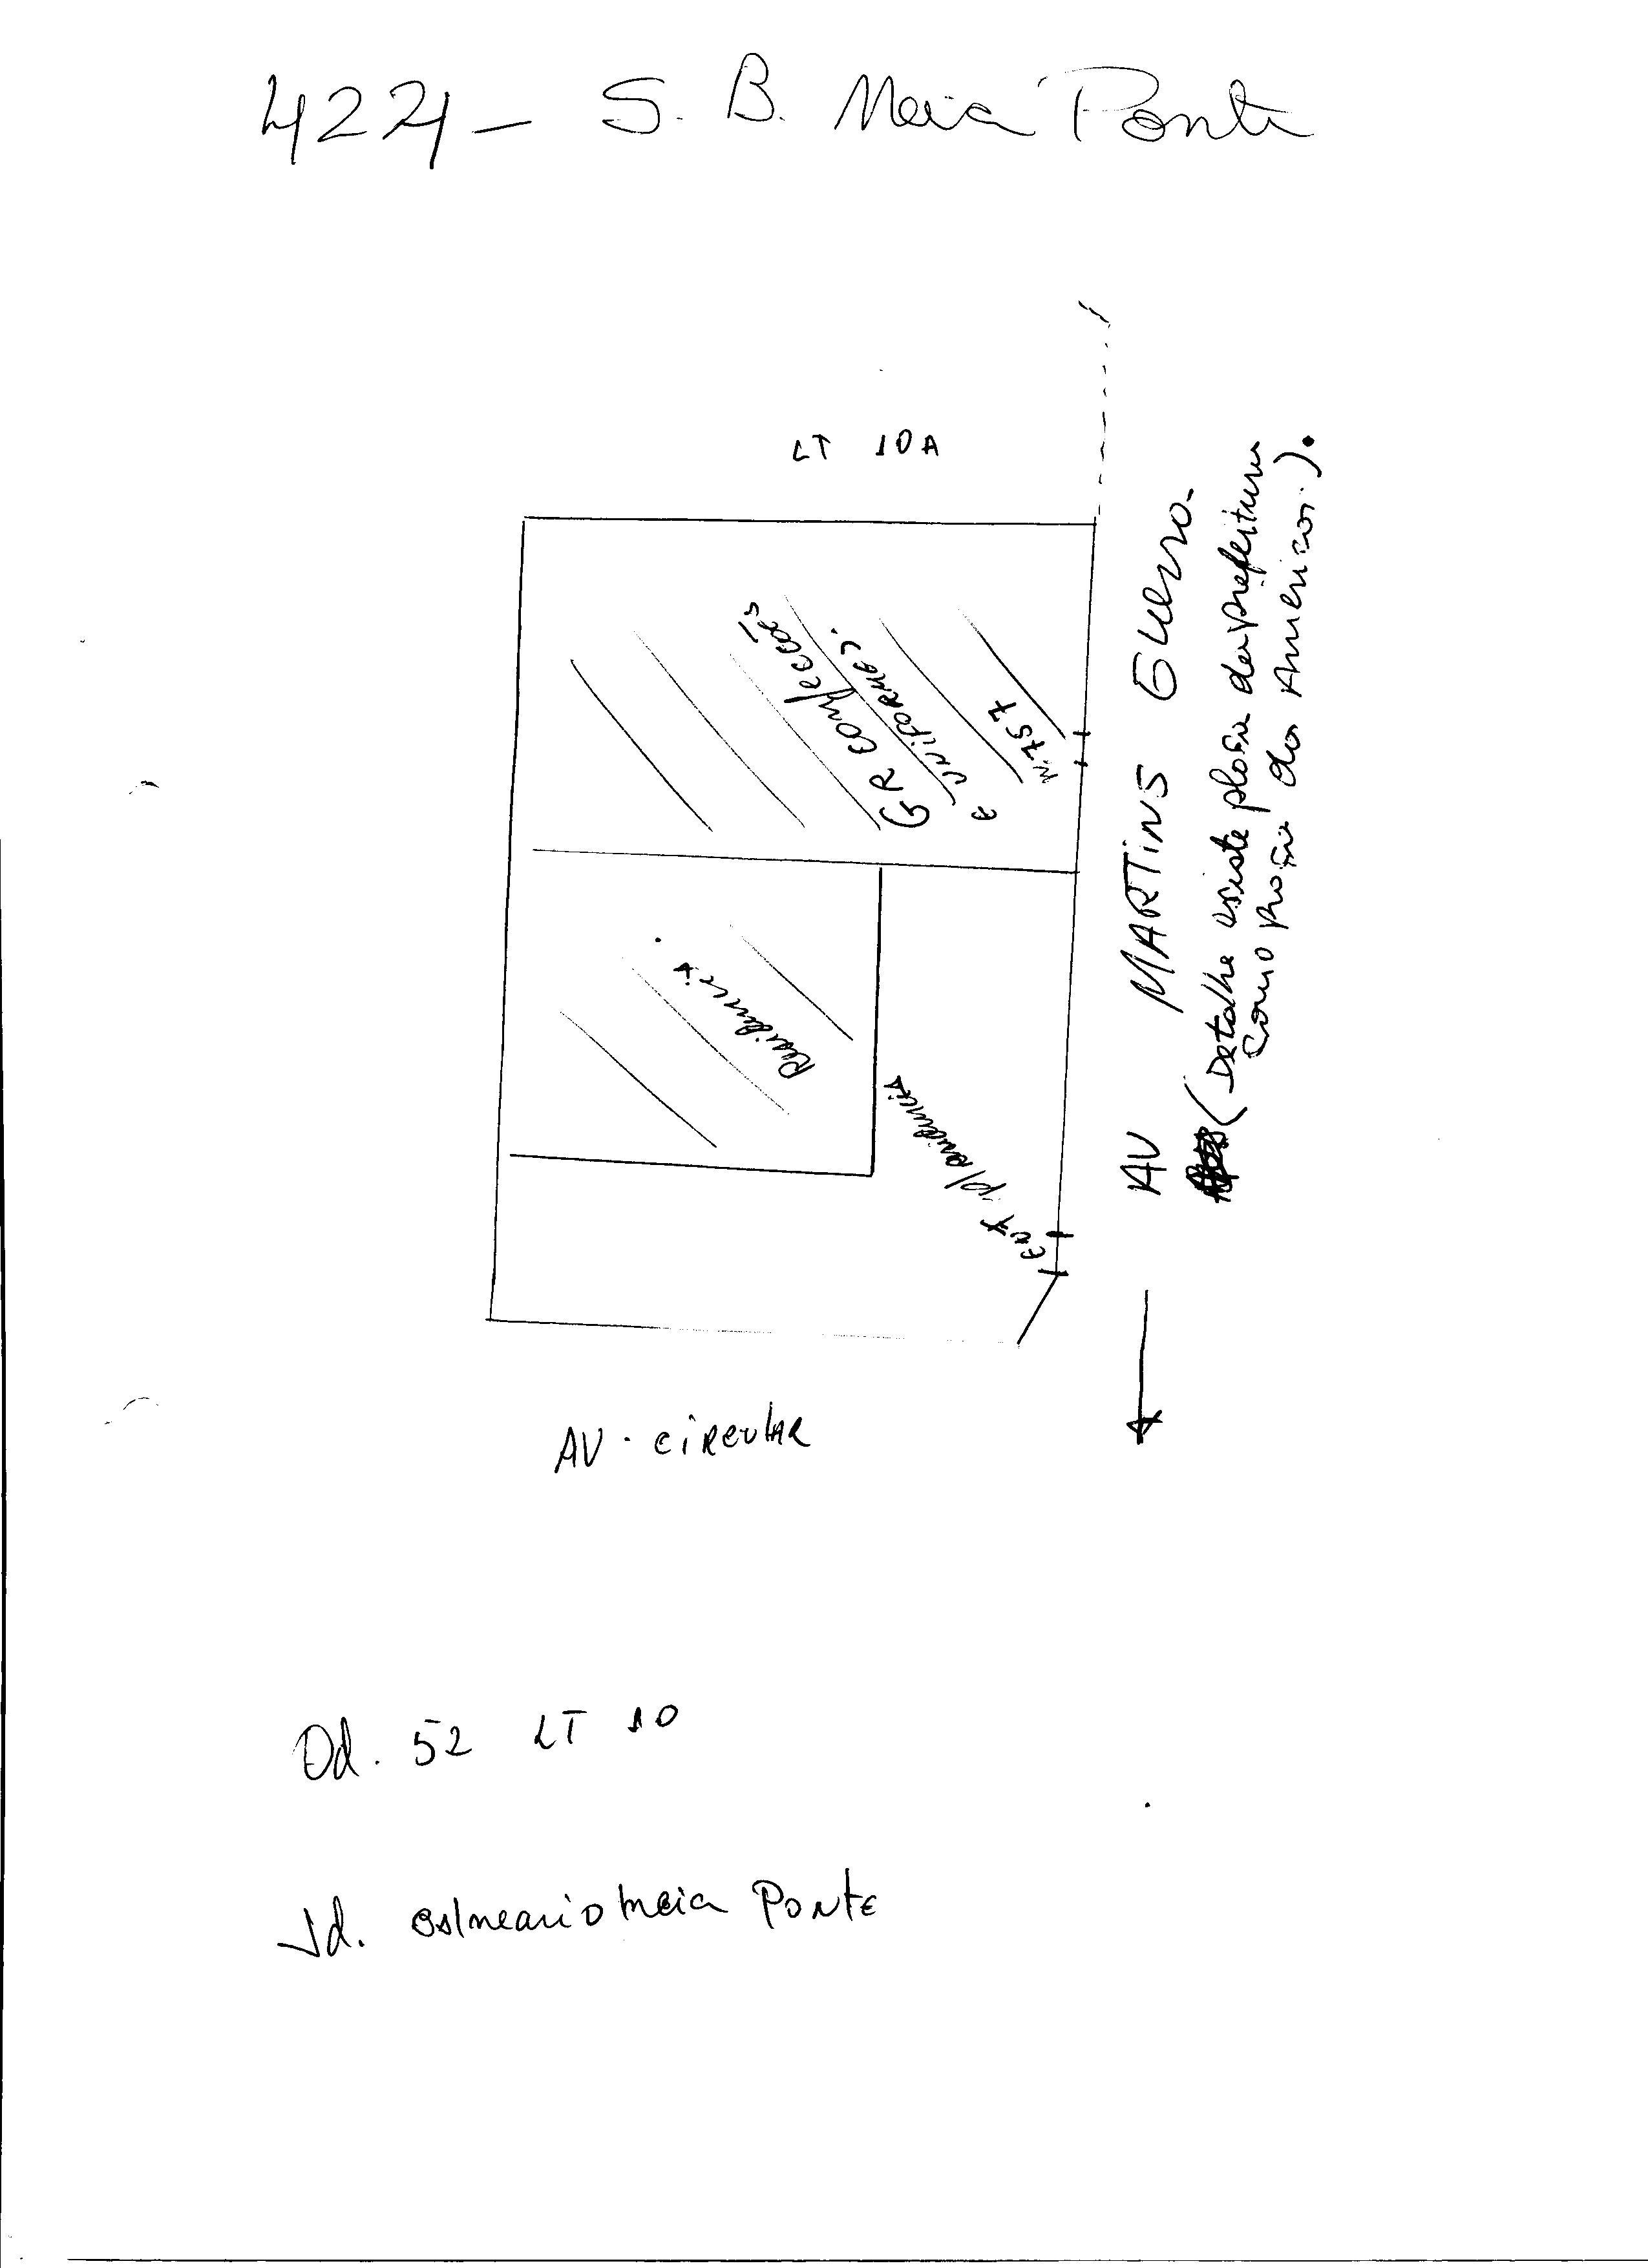 4224 - S. B. Meia Ponte
LT 10A
GR confecções
e UNIFORMES.
N. 757
Residencia
ENT p/ residencia
AV MARTINS GUERRO
(Detalhe existe placa da prefeitura
como praça das Americas).
AV. CIRCULAR
Qd. 52 LT 10
Jd. Balneario meia Ponte